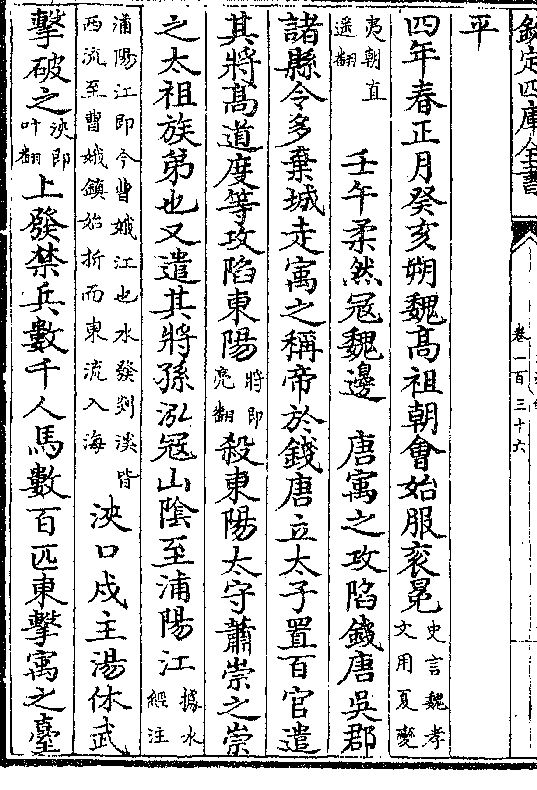 欽定四庫全書
卷一百三十六
平
四年春正月癸亥朔魏髙祖朝會始服衮冕史言魏孝文用夏變
夷朝直遥翻 壬午柔然寇魏邊 唐寓之攻陷錢唐吳郡
諸縣令多棄城走寓之稱帝於錢唐立太子置百官遣
其將髙道度等攻陷東陽將即亮翻殺東陽太守蕭崇之崇
之太祖族弟也又遣其將孫泓寇山陰至浦陽江據水經注
浦陽江即今曹娥江也水發剡溪皆西流至曹娥鎮始折而東流入海浹口戍主湯休武
擊破之浹即叶翻上發禁兵數千人馬數百匹東擊寓之臺